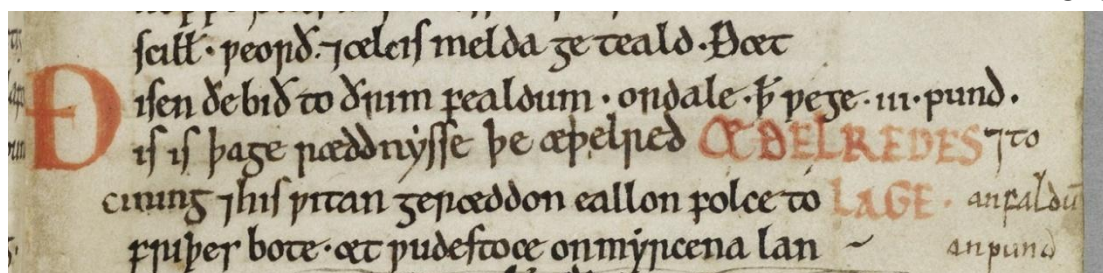 scill̄· ƿeorð. ⁊ ælc is melda ge teald. Ðæt
isen ðe bið to ðrim fealdum · ordale · ꝥ ƿege · III · pund.
Ðis is þa ge rædnysse þe æþelred ÆÐELREDES ⁊ to
cining ⁊ his ƿitan geræddon eallon folce to LAGE · anfaldū
friþes bote · æt ƿudestoce on myrcena lan ~ anpund